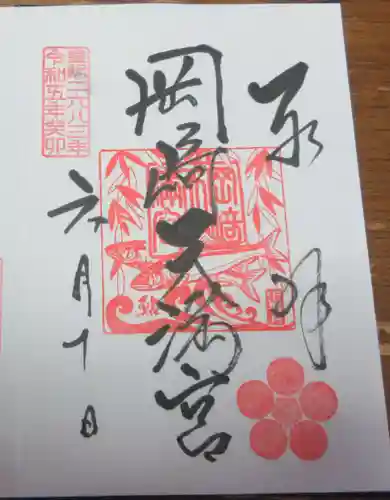 奉拝
岡崎天満宮
皇紀二六八三年
令和五年癸卯
六月十日
鮎